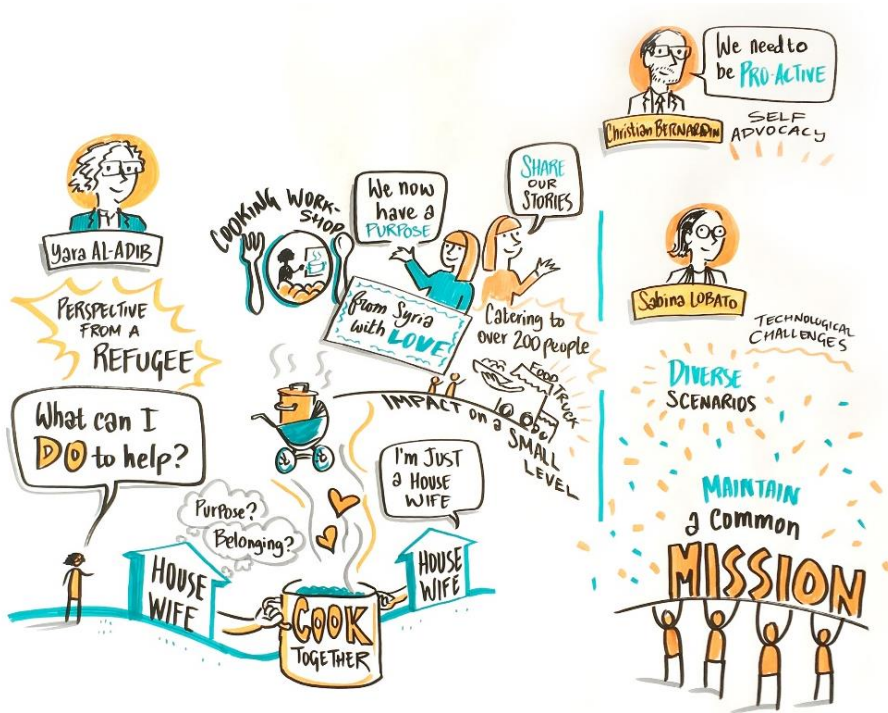 Yara AL-ADIB
PERSPECTIVE
FROM A
REFUGEE
What can I
DO to help?
Purpose?
Belonging?
HOUSE
WIFE
COOK
TOGETHER
I'm JUST
a HOUSE
WIFE
HOUSE
WIFE
COOKING WORK-
SHOP
We now
have a
PURPOSE
SHARE
OUR
STORIES
from Syria
with LOVE
Catering to
over 200 people
FOOD
TRUCK
IMPACT on a SMALL
LEVEL
We need to
be PRO-ACTIVE
Christian BERNARDIN
SELF
ADVOCACY
Sabina LOBATO
TECHNOLOGICAL
CHALLENGES
DIVERSE
SCENARIOS
MAINTAIN
a Common
MISSION